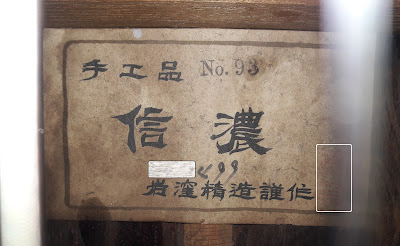 手工品 No. 93
信濃
岩窪精造謹作